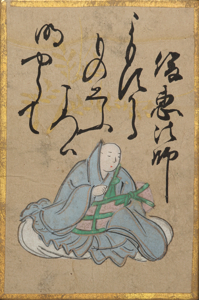 俊惠法師
よもすから
もの思ふ
ころハ
明やらて